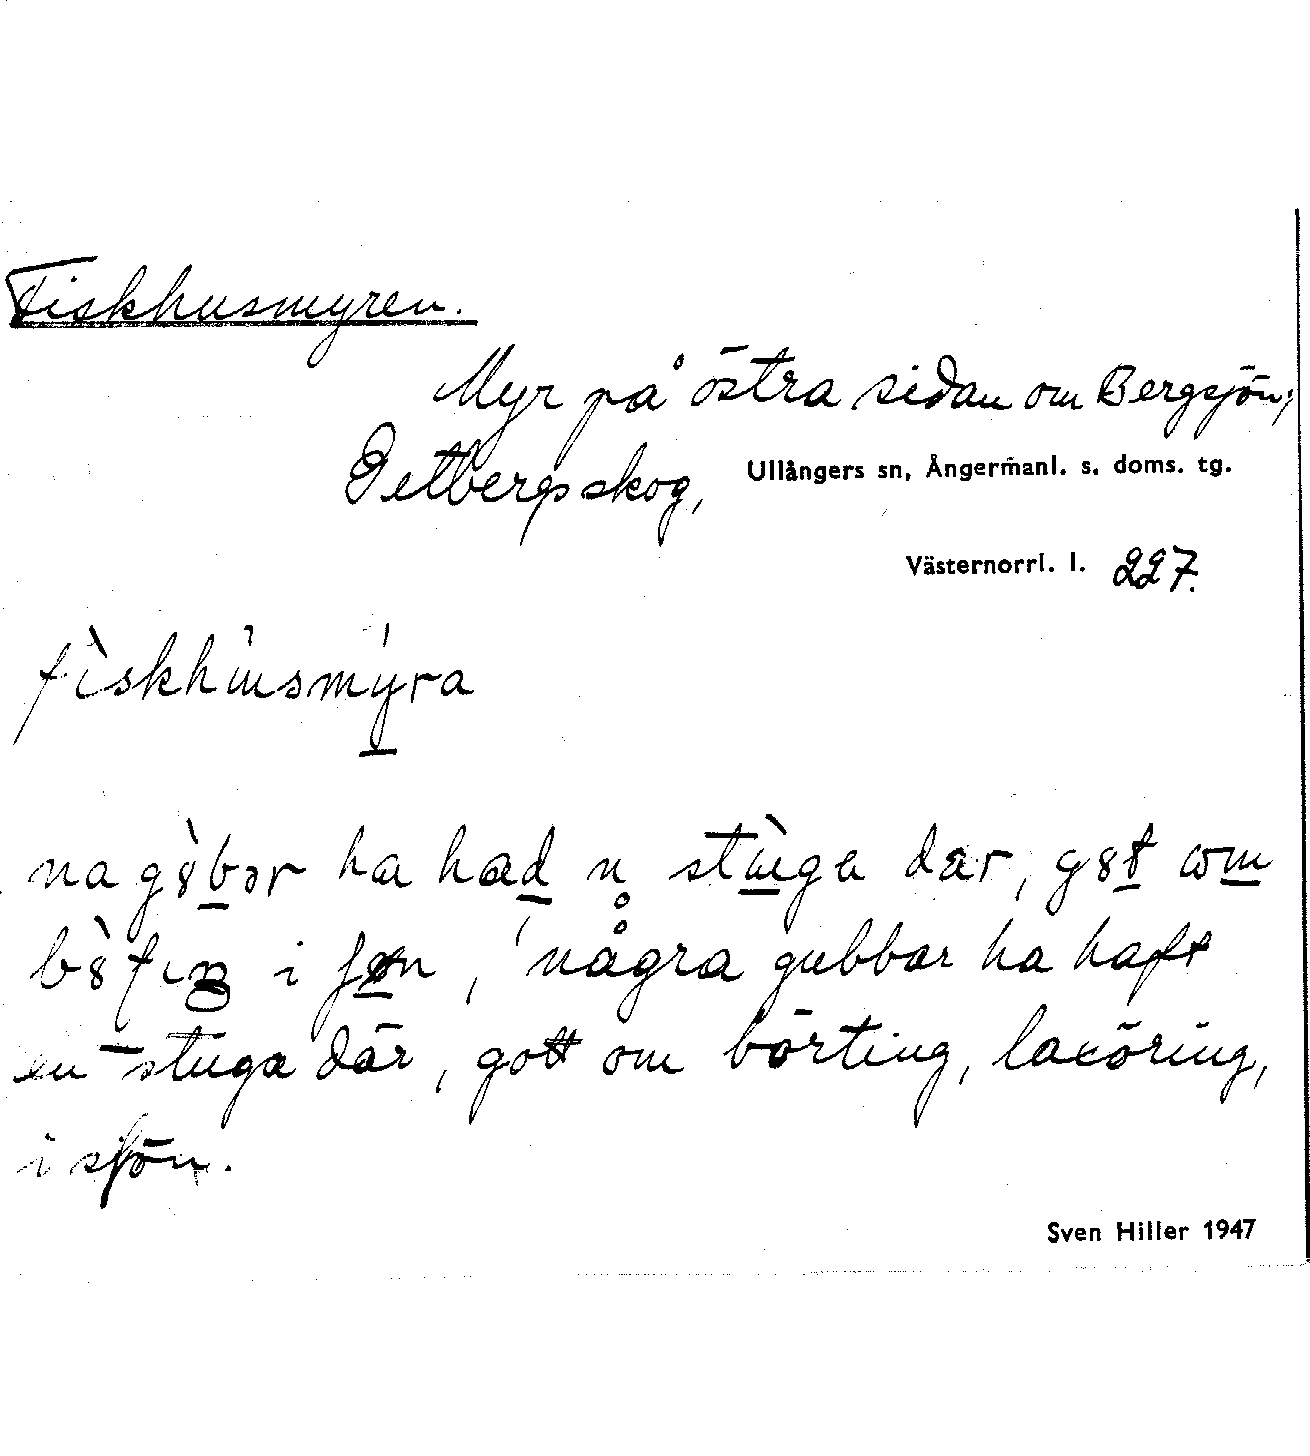 Fiskhusmyren.
Myr på östra sidan om Bergsjön,
Getbergsskog, Ullångers sn, Ångermanl. s. doms. tg.
Västernorrl. l. 227.
fìskhusmyra
na ha had n stùga dar, om
i , några gubbar ha haft
en stuga där, gott om börting, laxöring,
i sjön.
Sven Hiller 1947